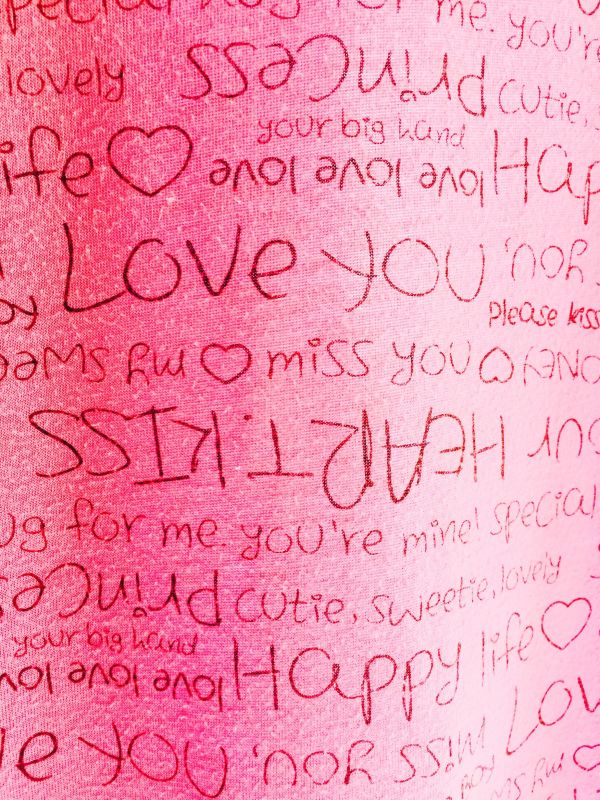 special hug for me. you're
lovely princess cutie,
your big hand
life ♡ love love love Hap
Love you you,
please kiss
my swee ♡ miss you ♡
HEART.KISS
ug for me. you're mine! special
princes cutie, sweetie, lovely
your big hand
love love Happy life ♡
ve you miss you, Lov
my swe ♡